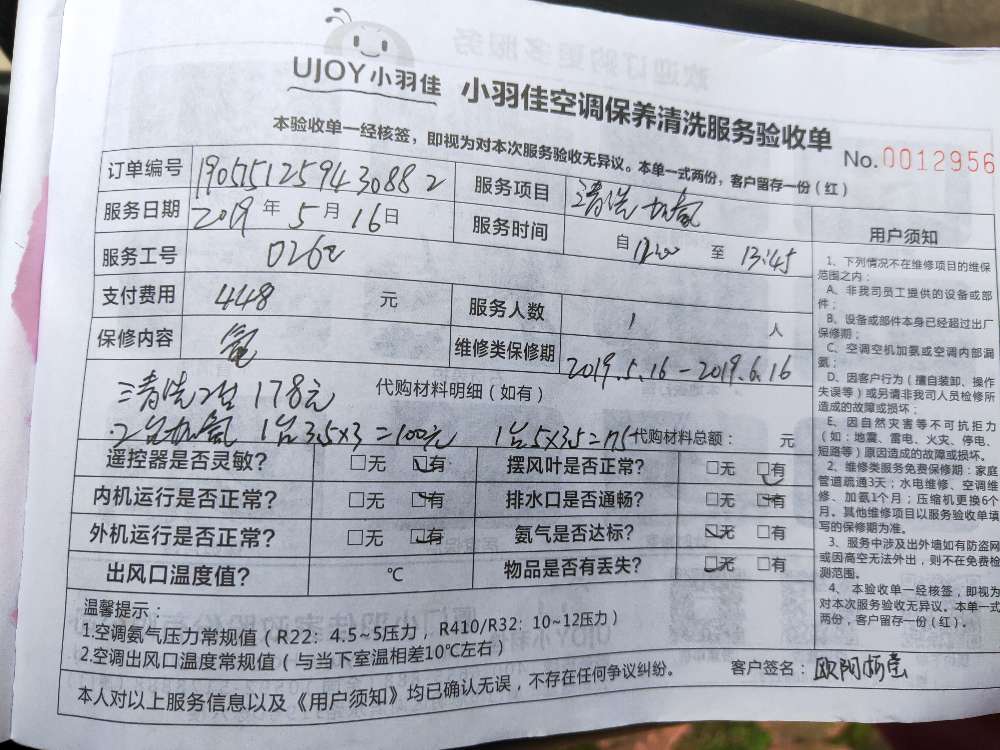 UJOY小羽佳
小羽佳空调保养清洗服务验收单
本验收单一经核签，即视为对本次服务验收无异议。本单一式两份，客户留存一份（红）
No.0012956
订单编号 19051512594308 8 2 服务项目 清洗 加氟
服务日期 2019 年 5 月 16 日 服务时间 自 至 13:45
服务工号 0262
支付费用 448 元 服务人数 1 人
保修内容 氟 维修类保修期 2019.5.16-2019.6.16
清洗2台 178元 代购材料明细（如有）
2台加氟 1台3.5×3=100元 1台5×35=175 代购材料总额： 元
遥控器是否灵敏? □无 □有 摆风叶是否正常? □无 □有
内机运行是否正常? □无 □有 排水口是否通畅? □无 □有
外机运行是否正常? □无 □有 氨气是否达标? □无 □有
出风口温度值? ℃ 物品是否有丢失? □无 □有
温馨提示：
1.空调氨气压力常规值（R22：4.5~5压力，R410/R32：10~12压力）
2.空调出风口温度常规值（与当下室温相差10℃左右）
客户签名：
本人对以上服务信息以及《用户须知》均已确认无误，不存在任何争议纠纷。
用户须知
1、下列情况不在维修项目的维保
范围之内：
A、非我司员工提供的设备或部
件；
B、设备或部件本身已经超过出厂
保修期；
C、空调空机加氨或空调内部漏
氨；
D、因客户行为（擅自装卸、操作
失误等）或另请非我司人员检修所
造成的故障或损坏；
E、因自然灾害等不可抗拒力
（如：地震、雷电、火灾、停电、
短路等）原因造成的故障或损坏。
2、维修类服务免费保修期：家庭
管道疏通3天；水电维修、空调维
修、加氨1个月；压缩机更换6个
月。其他维修项目以服务验收单填
写的保修期为准。
3、服务中涉及出外墙如有防盗网
或因高空无法外出，则不在免费检
测范围。
4、本验收单一经核签，即视为
对本次服务验收无异议。本单一式
两份，客户留存一份（红）。